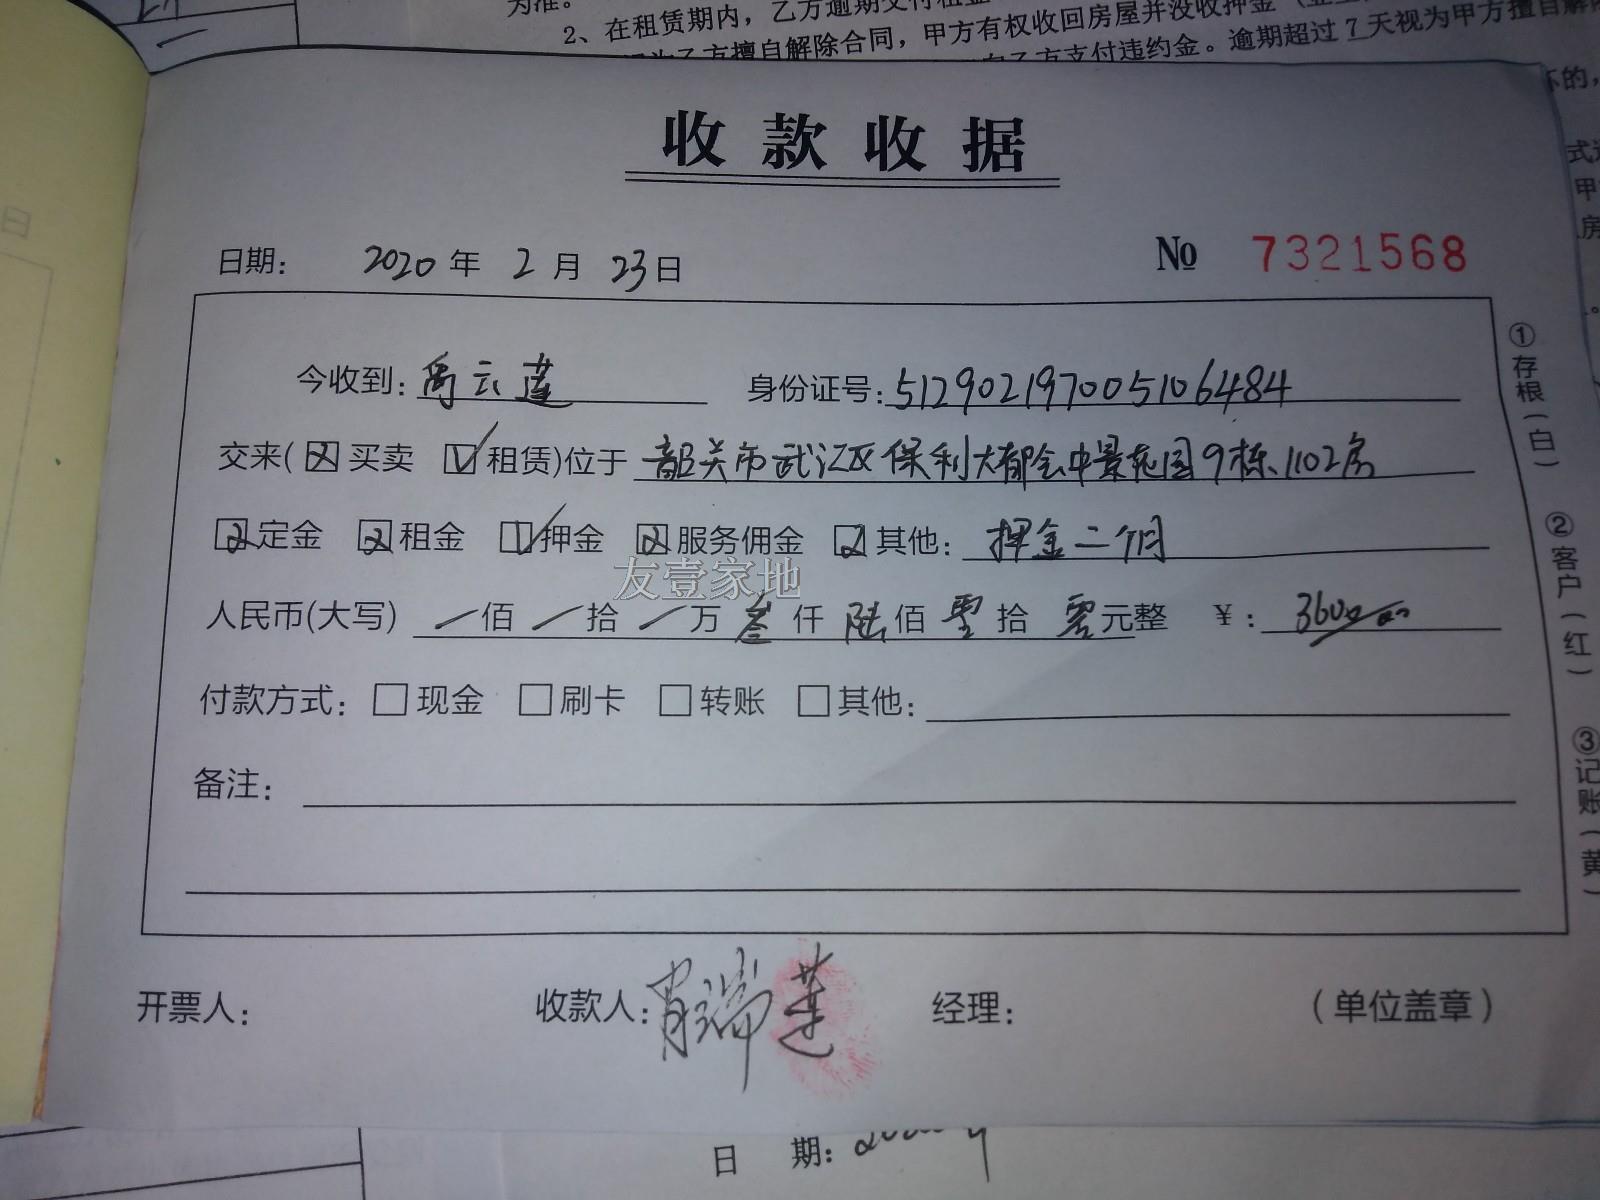 为准。
2、在租赁期内，乙方逾期交付租金
甲方有权收回房屋并没收押金
乙方擅自解除合同，
向乙方支付违约金。逾期超过7天视为甲方擅自解除
收款收据
日期： 2020年 2月 23日 № 7321568
今收到：禹云莲 身份证号：512902197005106484
交来(☒买卖 ☑租赁)位于 韶关市武江区保利大都会中景花园9栋1102房
☒定金 ☒租金 ☑押金 ☒服务佣金 ☒其他：押金二个月
友壹家地
人民币(大写) 一佰一拾一万叁仟陆佰零拾零元整 ¥：3600.00
付款方式：□现金 □刷卡 □转账 □其他：
备注：
开票人： 收款人：肖瑞莲 经理： （单位盖章）
①存根（白）
②客户（红）
③记账（黄）
日 期：